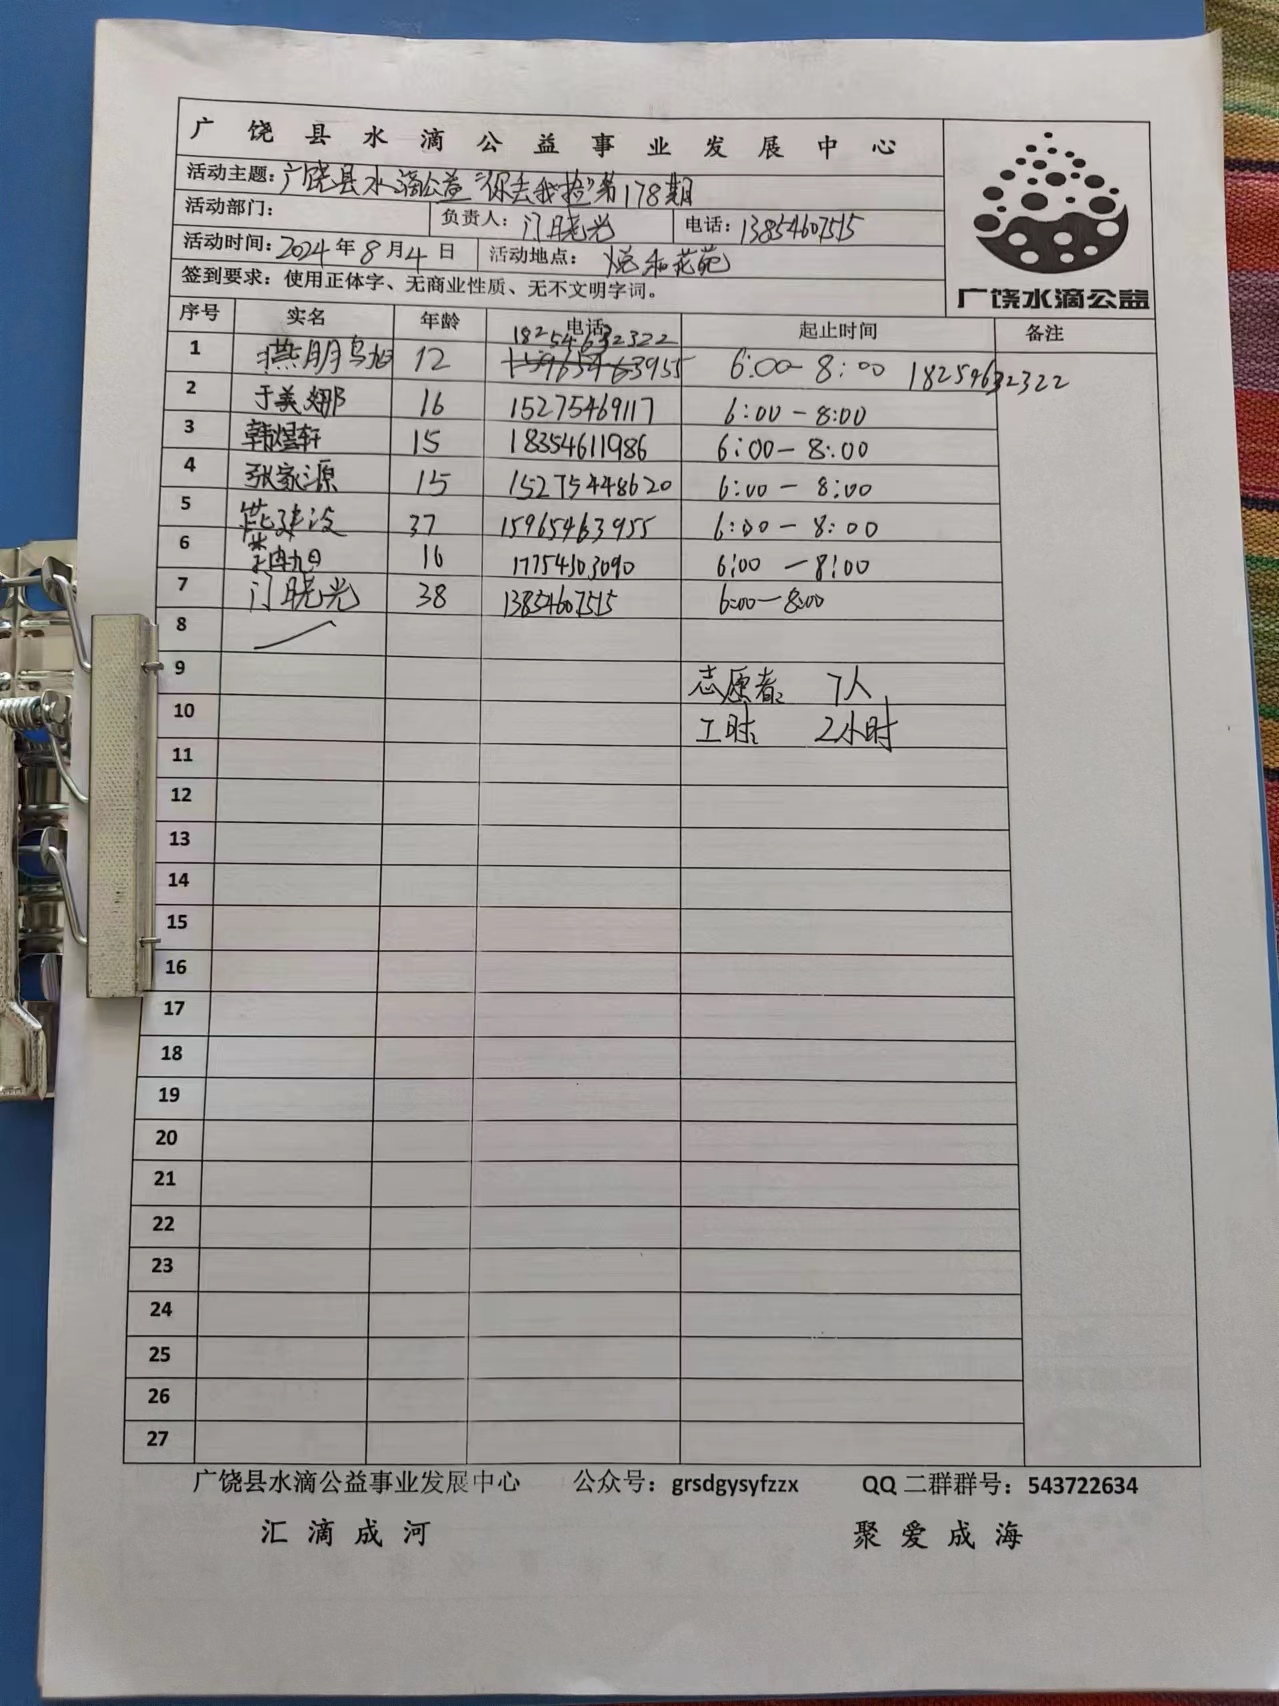 广饶县水滴公益事业发展中心
活动主题：广饶县水滴公益"你丢我捡"第178期
活动部门： 负责人：门晓光 电话：13854607515
活动时间：2024年8月4日 活动地点：悦和花苑
签到要求：使用正体字、无商业性质、无不文明字词。
广饶水滴公益
序号 实名 年龄 电话 起止时间 备注
18254632322
1 12 15965463955 6:00-8:00 18254632322
2 于美娜 16 15275469117 6:00-8:00
3 韩煜轩 15 18354611986 6:00-8:00
4 张家源 15 15275448620 6:00-8:00
5 37 15965463955 6:00-8:00
6 16 17754503090 6:00-8:00
7 门晓光 38 13854607515 6:00-8:00
8
9 志愿者：7人
10 工时：2小时
11
12
13
14
15
16
17
18
19
20
21
22
23
24
25
26
27
广饶县水滴公益事业发展中心 公众号：grsdgysyfzzx QQ二群群号：543722634
汇滴成河 聚爱成海